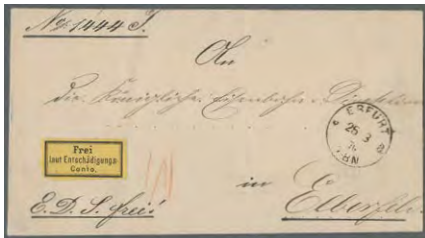 No 1444 J.
An
die Königliche Eisenbahn-Direktion
ERFURT
25 3
BHN
Frei
laut Entschädigungs-
Conto.
in
E. D. S. frei
Elberfeld